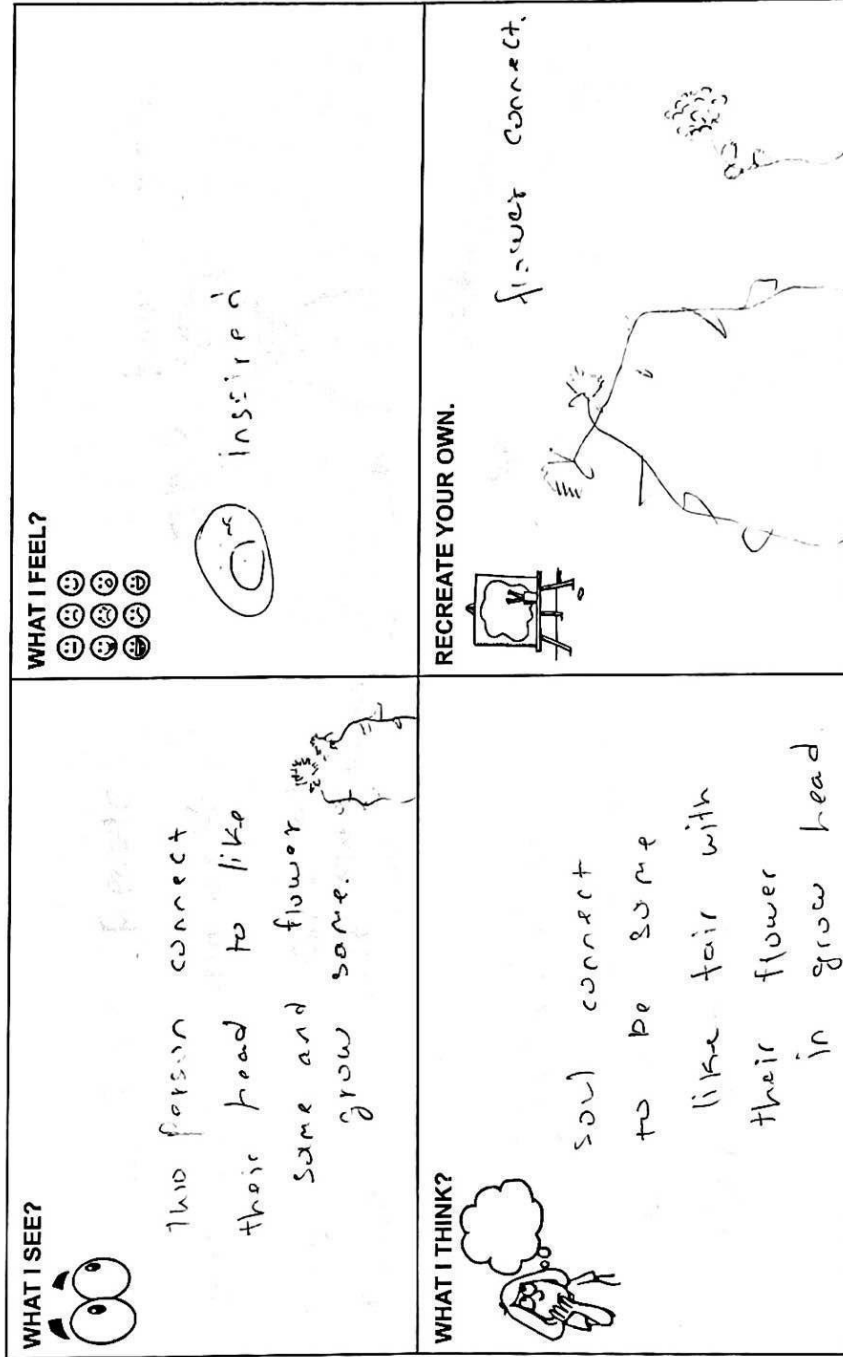 WHAT I SEE?
Two person connect
their head to like
same and flower
grow same.
WHAT I FEEL?
inspired
WHAT I THINK?
soul connect
to be same
like fair with
their flower
in grow head
RECREATE YOUR OWN.
flower connect.